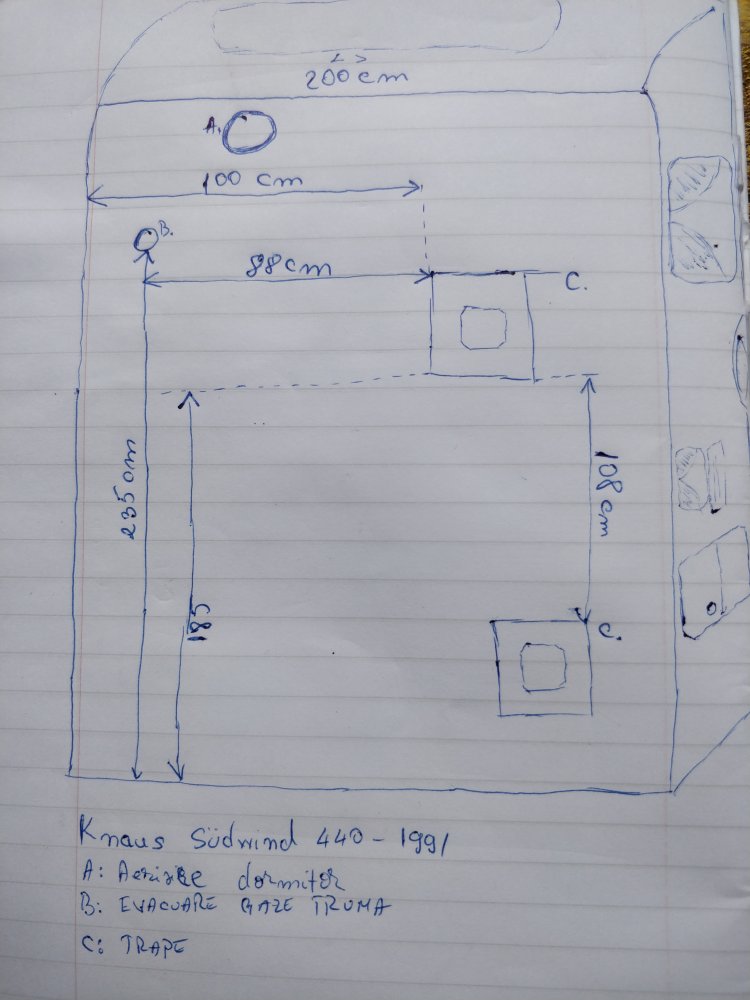 200 cm
A.
100 cm
B.
88 cm
C.
235 cm
108 cm
185
C.
Knaus Südwind 440 - 1991
A: Aerisire dormitor
B: EVACUARE GAZE TRUMA
C: TRAPE